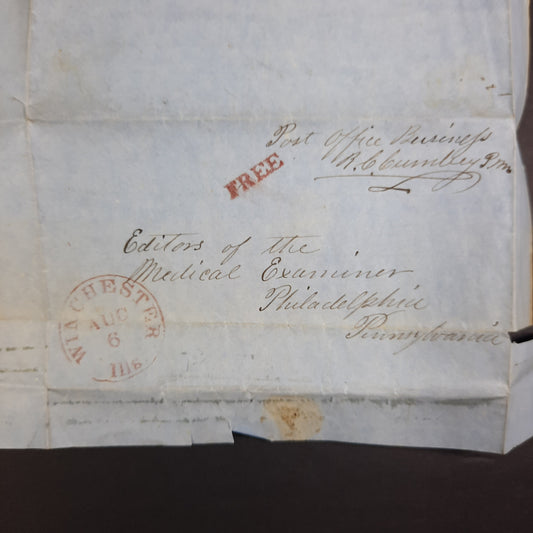 Post Office Business
R. C. Cumbley P.m.
FREE
Editors of the
Medical Examiner
Philadelphia
Pennsylvania
WINCHESTER
AUG
6
Ills